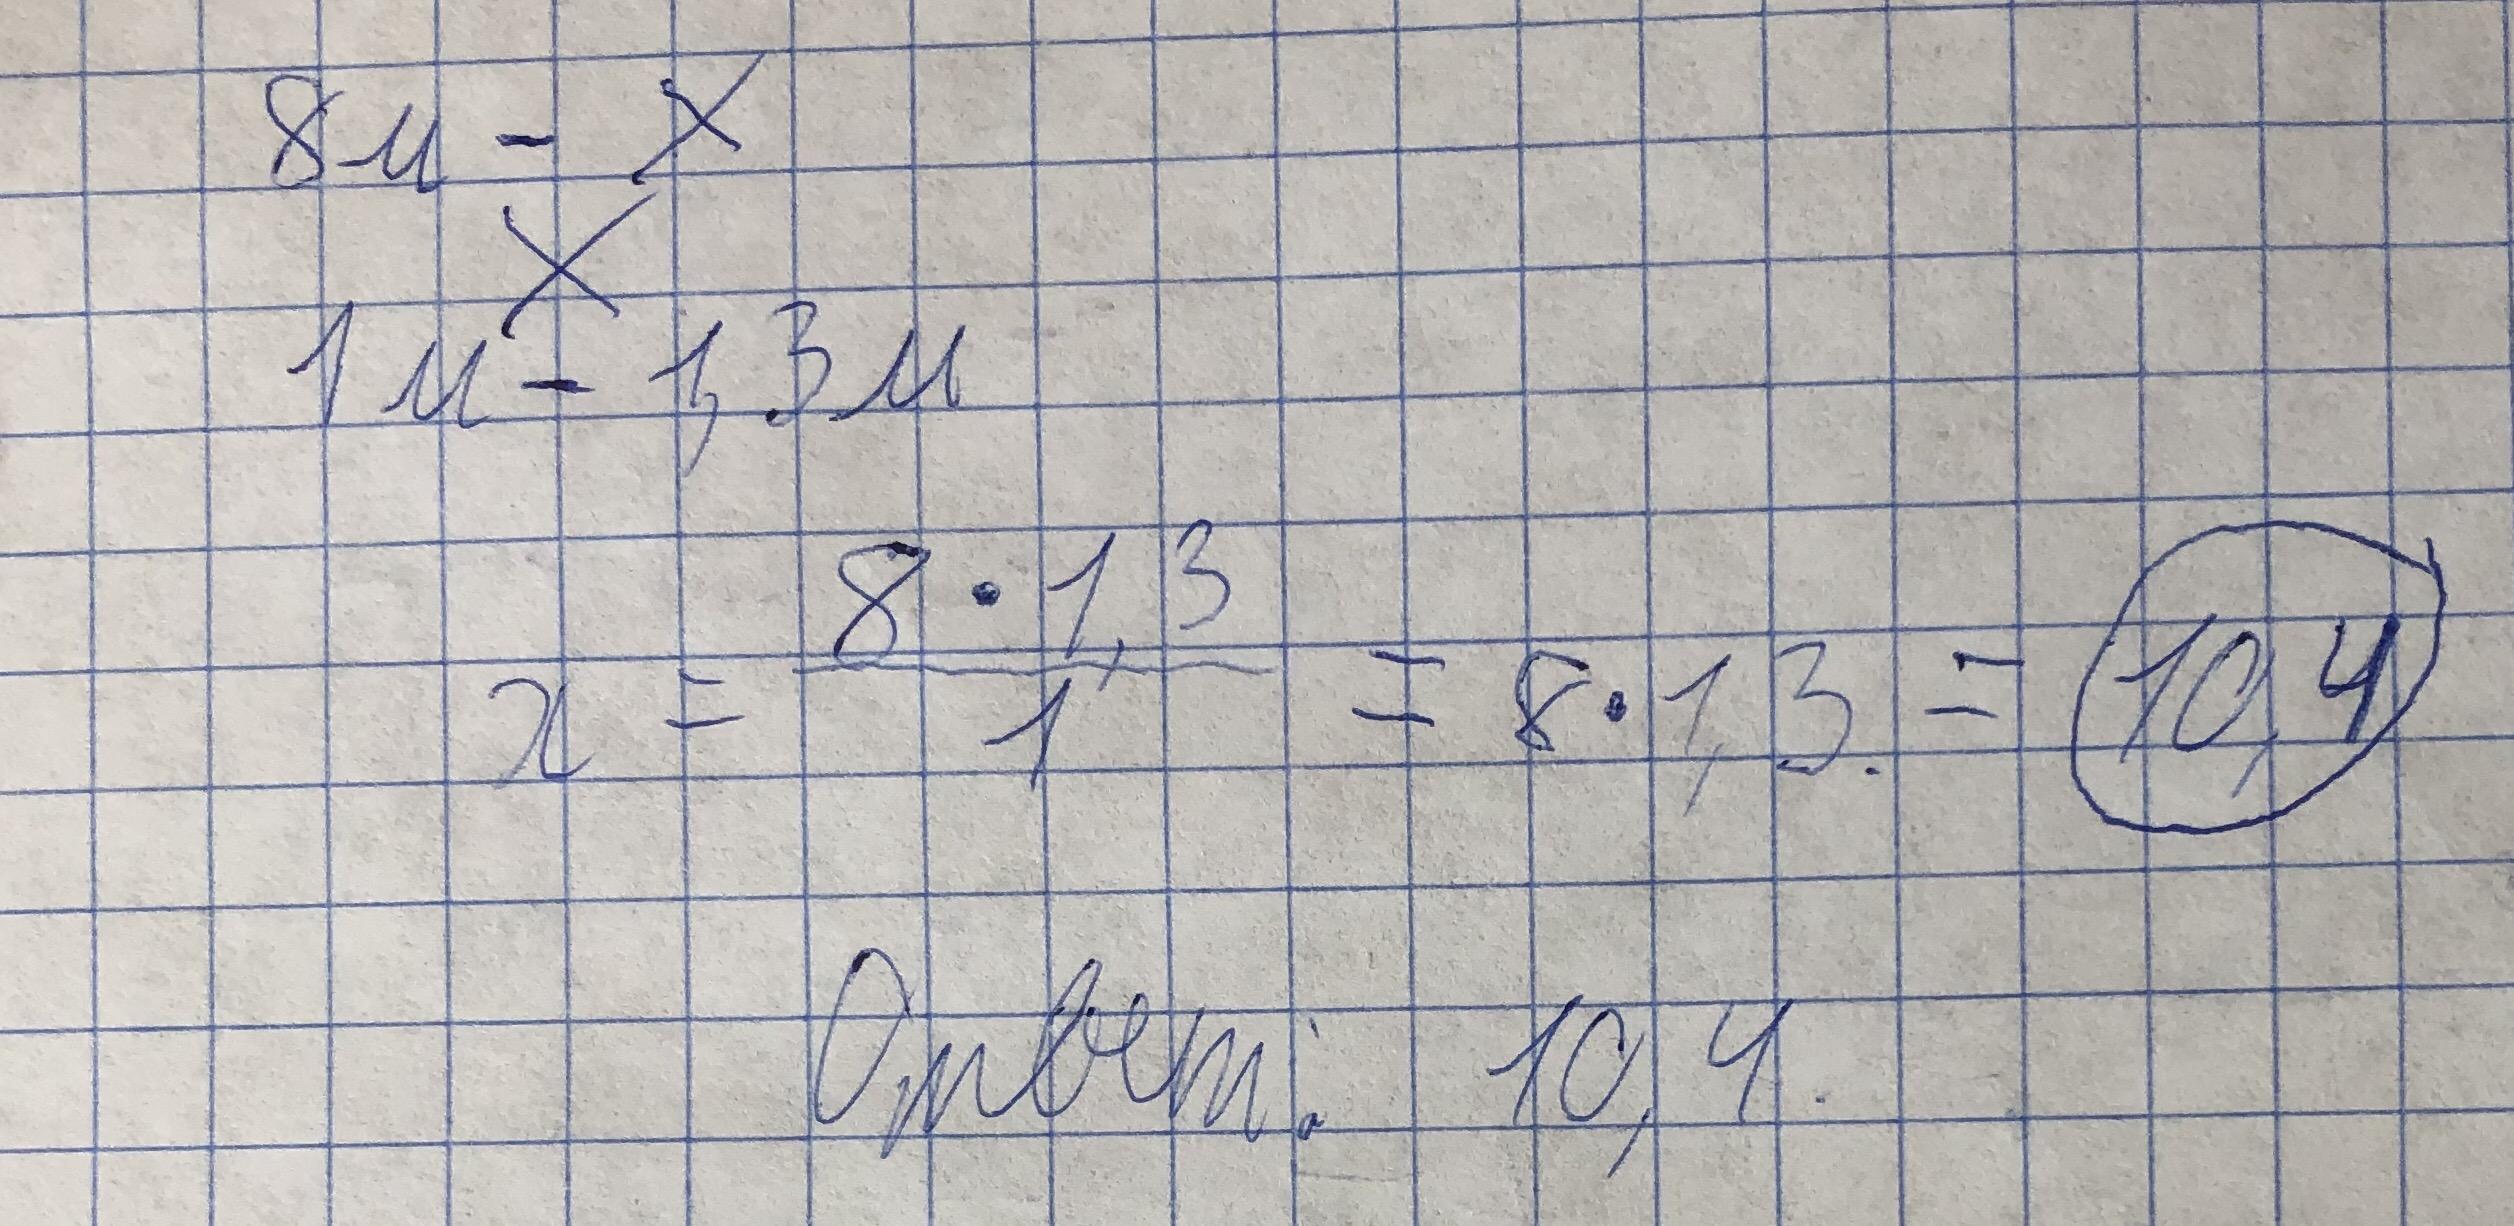 8м - x
x
1м - 1,3м
x = 8 · 1,3 / 1 = 8 · 1,3. = 10,4
Ответ: 10,4.